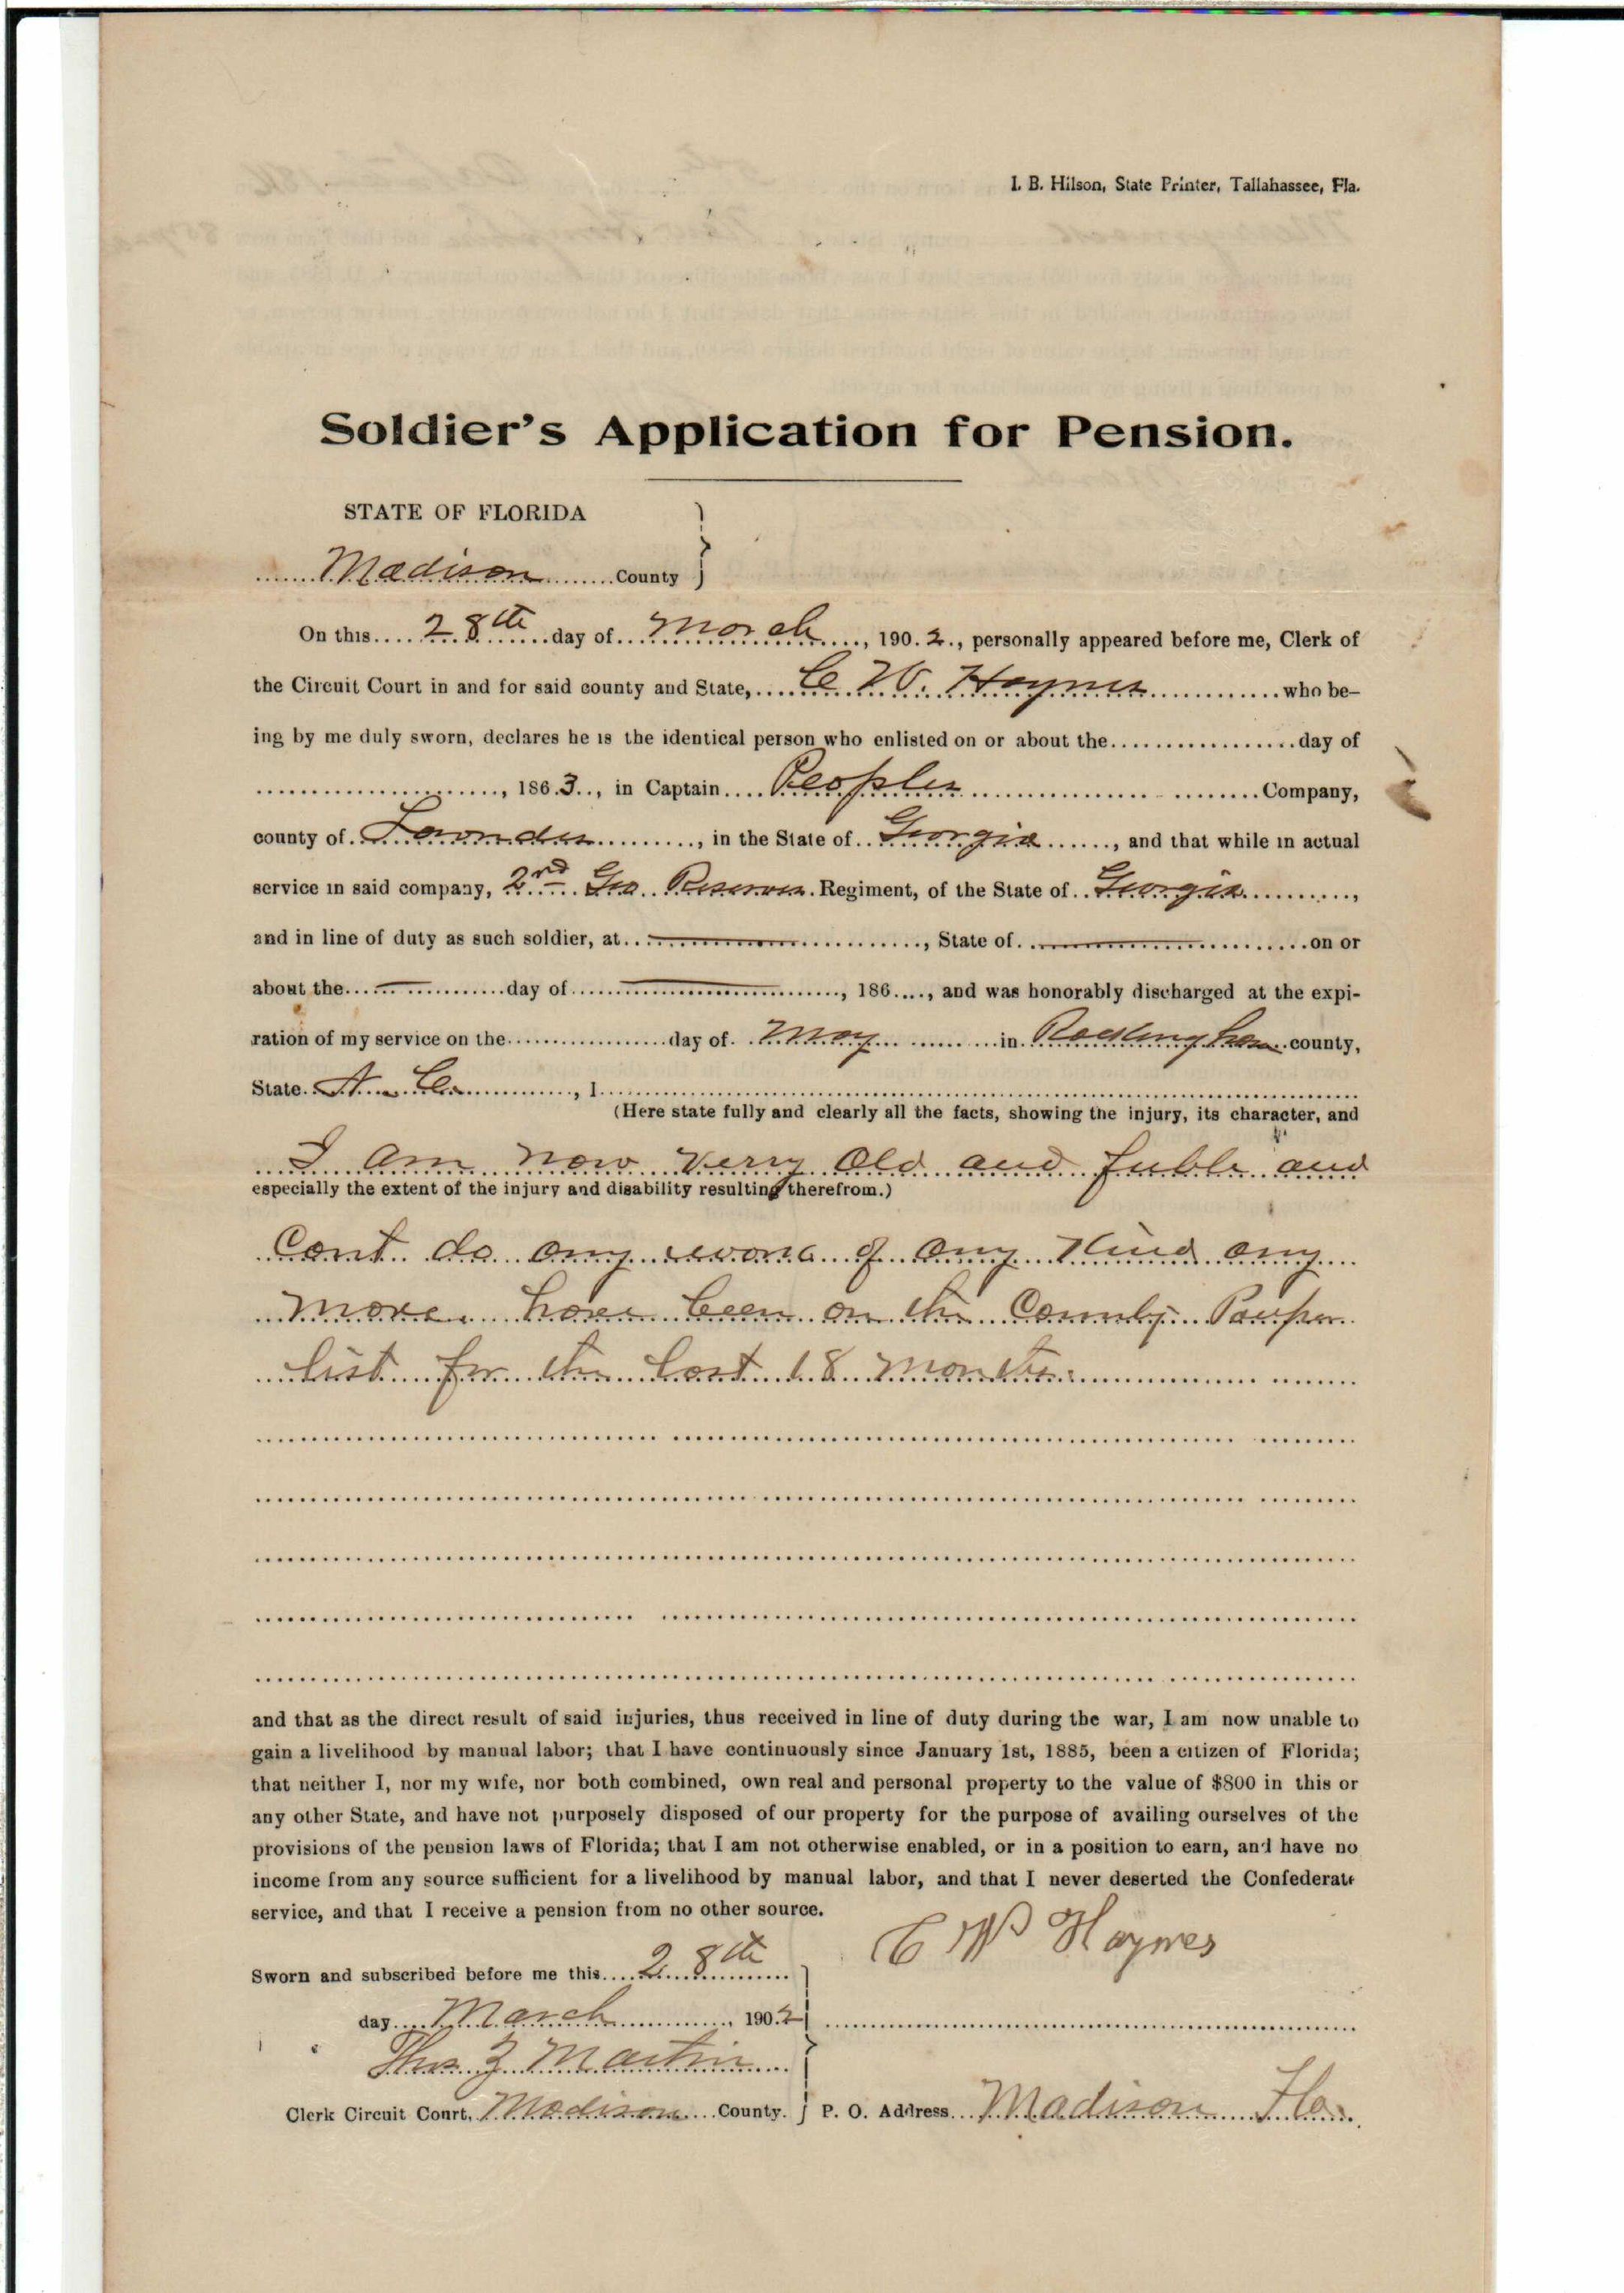 I. B. Hilson, State Printer, Tallahassee, Fla.
Soldier's Application for Pension.
STATE OF FLORIDA
Madison County
On this 28th day of March, 1902, personally appeared before me, Clerk of
the Circuit Court in and for said county and State, C W. Haynes who be-
ing by me duly sworn, declares he is the identical person who enlisted on or about the day of
, 1863, in Captain Peoples Company,
county of Lowndes, in the State of Georgia, and that while in actual
service in said company, 2nd Ga Reserves Regiment, of the State of Georgia,
and in line of duty as such soldier, at, State of on or
about the day of, 186, and was honorably discharged at the expi-
ration of my service on the day of May in Rockingham county,
State N. C., I
(Here state fully and clearly all the facts, showing the injury, its character, and
I am now verry old and feeble and
especially the extent of the injury and disability resulting therefrom.)
Cant do any work of any Kind any
more. have been on the County Pauper
list for the last 18 months.
and that as the direct result of said injuries, thus received in line of duty during the war, I am now unable to
gain a livelihood by manual labor; that I have continuously since January 1st, 1885, been a citizen of Florida;
that neither I, nor my wife, nor both combined, own real and personal property to the value of $800 in this or
any other State, and have not purposely disposed of our property for the purpose of availing ourselves of the
provisions of the pension laws of Florida; that I am not otherwise enabled, or in a position to earn, and have no
income from any source sufficient for a livelihood by manual labor, and that I never deserted the Confederate
service, and that I receive a pension from no other source.
C W Haynes
Sworn and subscribed before me this 28th
day March, 1902
Thos Z Martin
Clerk Circuit Court, Madison County. P. O. Address Madison Fla.